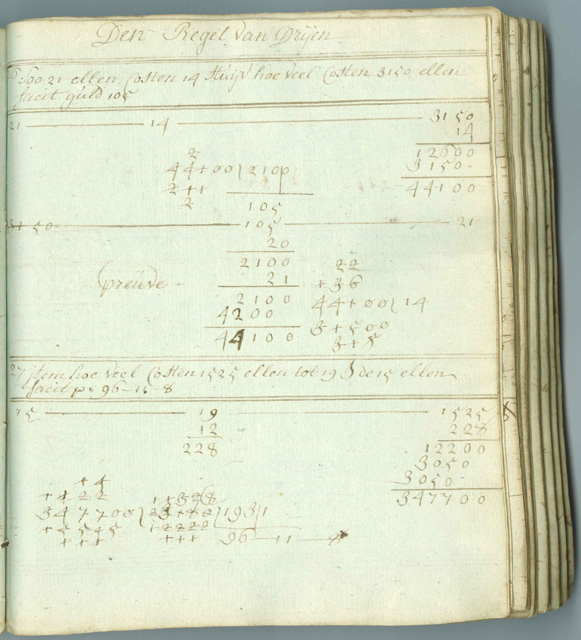 Den Regel van Drijen
Soo 21 ellen Costen 14 Stuijv hoe veel Costen 3150 ellen
facit guld 105
21 14 3150
14
12600
3150
44100
2
44100 | 2100
2
105
3150 105 21
20
2100
21
2100
4200
44100
preuve
22
44100 | 14
Item hoe veel Costen 1525 ellen tot 19 de 15 ellen
facit 96 - 11 - 8
15 19 1525
12 228
228 12200
3050
3050
347700
347700
1931
96 - 11 - 8